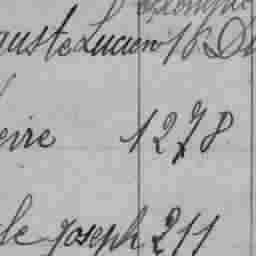 guste Lucien 18 D
eire 1278
le Joseph 211